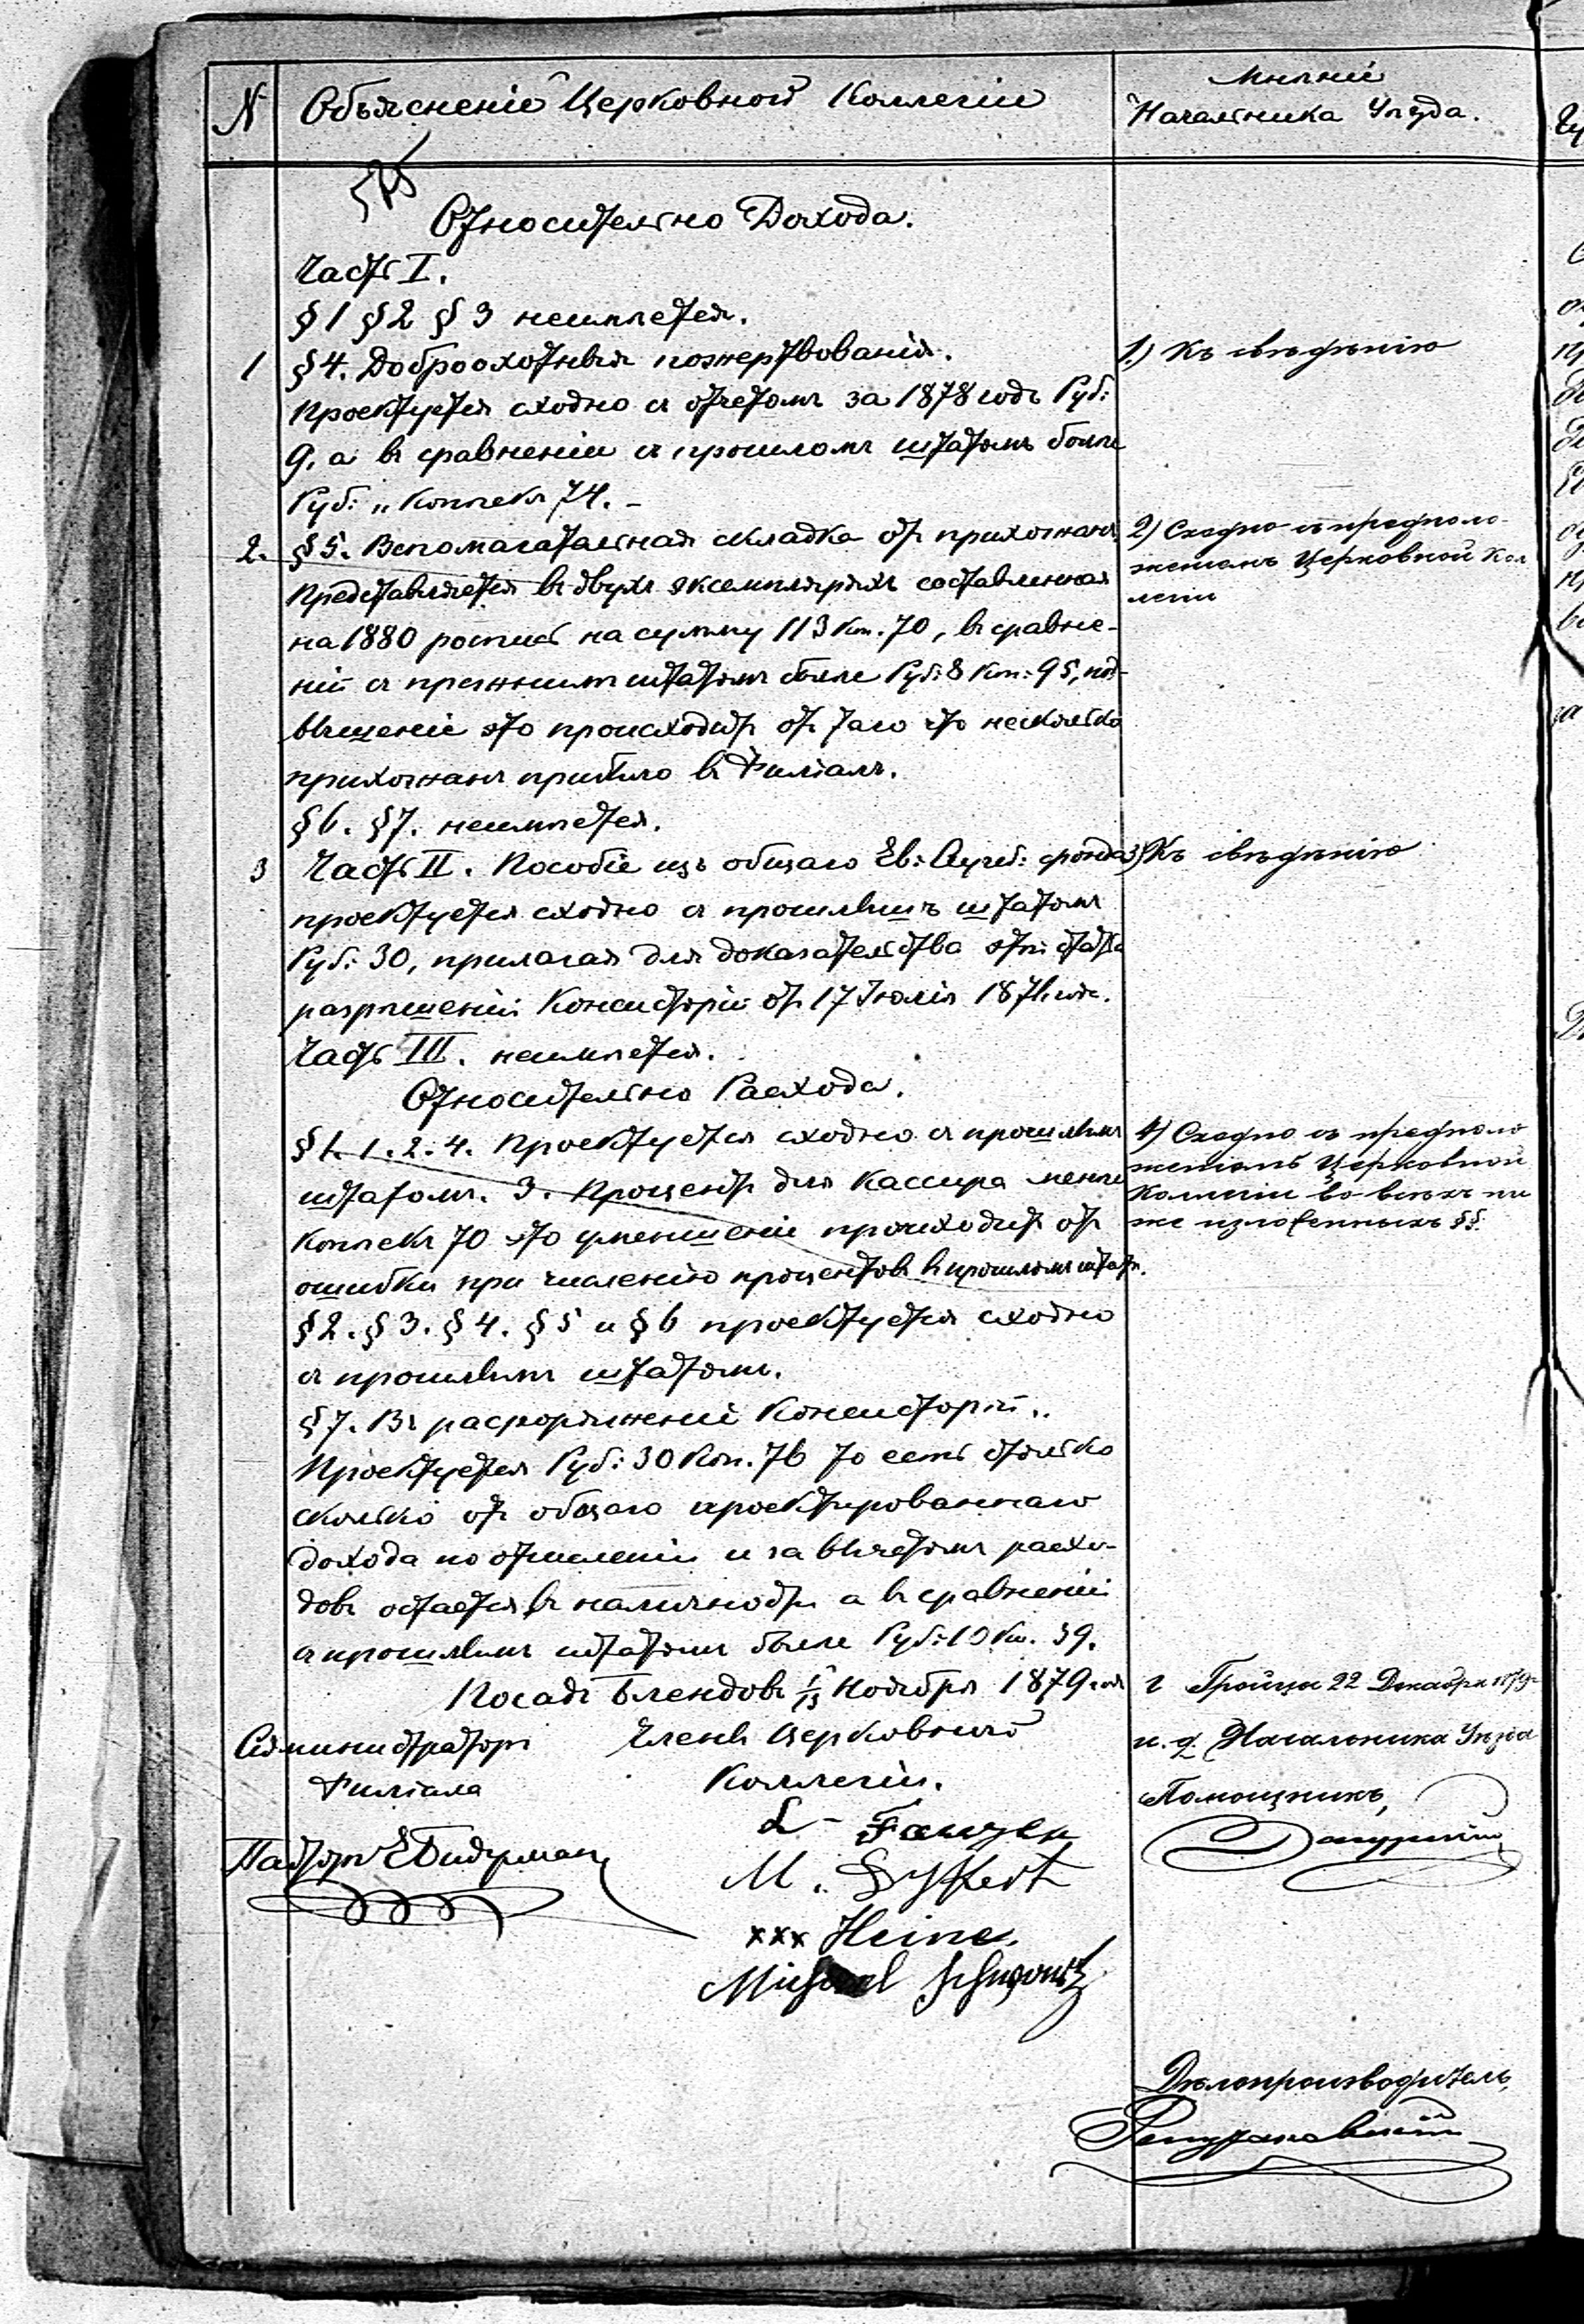 №
Объясненіе Церковной Коллегіи
Мнѣніе
Начальника Уѣзда.
Относительно Дохода.
Часть I.
§ 1 § 2 § 3 неимѣется.
1 § 4. Доброохотныя пожертвованія.
Проектуется сходно съ отчетомъ за 1878 годъ Руб:
9. а въ сравненіи съ прошломъ штатомъ болѣе
Руб: „ Копѣекъ 74. –
2. § 5. Вспомагательная складка отъ прихожанъ
Представляется въ двухъ экземплярахъ составленная
на 1880 роспись на сумму 113 Коп. 70, въ сравне-
ніи съ прежнимъ штатомъ болѣе Руб: 8 Коп: 95, под-
вышеніе это происходитъ отъ того что несколько
прихожанъ прибыло въ Филіалъ.
§ 6. § 7. неимѣется.
3 Часть II. Пособіе изъ общаго Ев: Аугсб: фонда
проектуется сходно съ прошлымъ штатомъ
Руб: 30, прилагая для доказательства этѣ статьи
разрѣшеніи Консисторіи отъ 17 Іюлія 1871 года.
Часть III. неимѣется.
Относительно Расхода.
§ 1. 1. 2. 4. Проектуется сходно съ прошлымъ
штатомъ. 3. Процентъ для Кассира менѣе
Копѣекъ 70 это уменшеніе происходитъ отъ
ошибки при численію процентовъ въ прошломъ штатѣ.
§ 2. § 3. § 4. § 5 и § 6 проектуется сходно
съ прошлымъ штатомъ.
§ 7. Въ распоряженіе Консисторіи..
Проектуется Руб: 30 Коп. 76 то есть столько
сколько отъ общаго проектированнаго
дохода по отчисленіи и за вычетомъ расхо-
довъ остается въ наличности а въ сравненіи
съ прошлымъ штатомъ болѣе Руб: 10 Коп. 39.
Посадъ Блендовъ 1/13 Ноября 1879 года
Администраторъ
Филіала
Пасторъ Е Бидерманъ
Члены Церковной
Коллегіи.
xxx Heine.
Michael Schwartz
1) Къ свѣдѣнію
2) Сходно съ предполо-
женіемъ Церковной Кол
легіи
3) Къ свѣдѣнію
4) Сходно съ предполо
женіемъ Церковной
Коллегіи во всѣхъ ни
же изложенныхъ §§.
г Гройцы 22 Декабря 1879 г
и. д. Начальника Уѣзда
Помощникъ,
Дѣлопроизводитель,